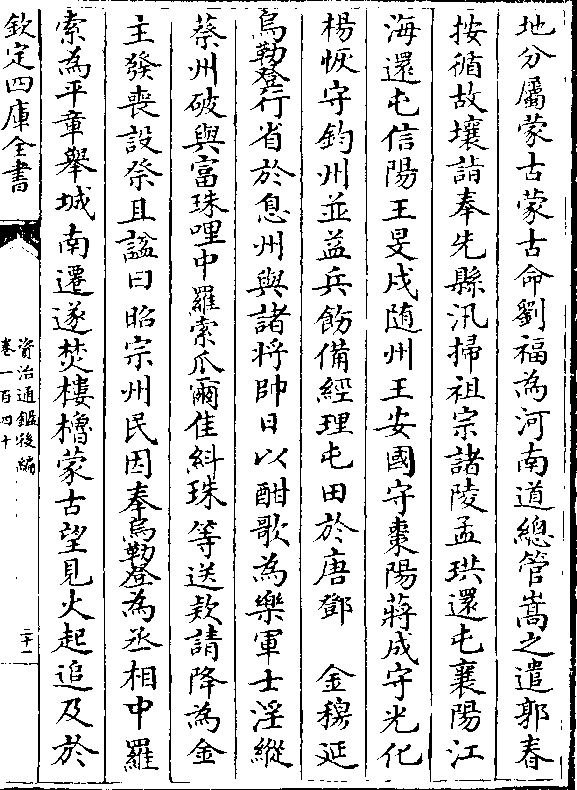 地分屬蒙古蒙古命劉福為河南道總管嵩之遣郭春
按循故壤詣奉先縣汛掃祖宗諸陵孟珙還屯襄陽江
海還屯信陽王旻戍随州王安國守棗陽蔣成守光化
楊恢守鈞州並益兵飭備經理屯田於唐鄧　金穆延
烏勒登行省於息州與諸將帥日以酣歌為樂軍士淫縱
蔡州破與富珠哩中羅索爪爾佳糾珠等送款請降為金
主發喪設祭且諡曰昭宗州民因奉烏勒登為丞相中羅
索為平章舉城南遷遂焚樓櫓蒙古望見火起追及於
欽定四庫全書
資治通鑑後編
卷一百四十
二十一